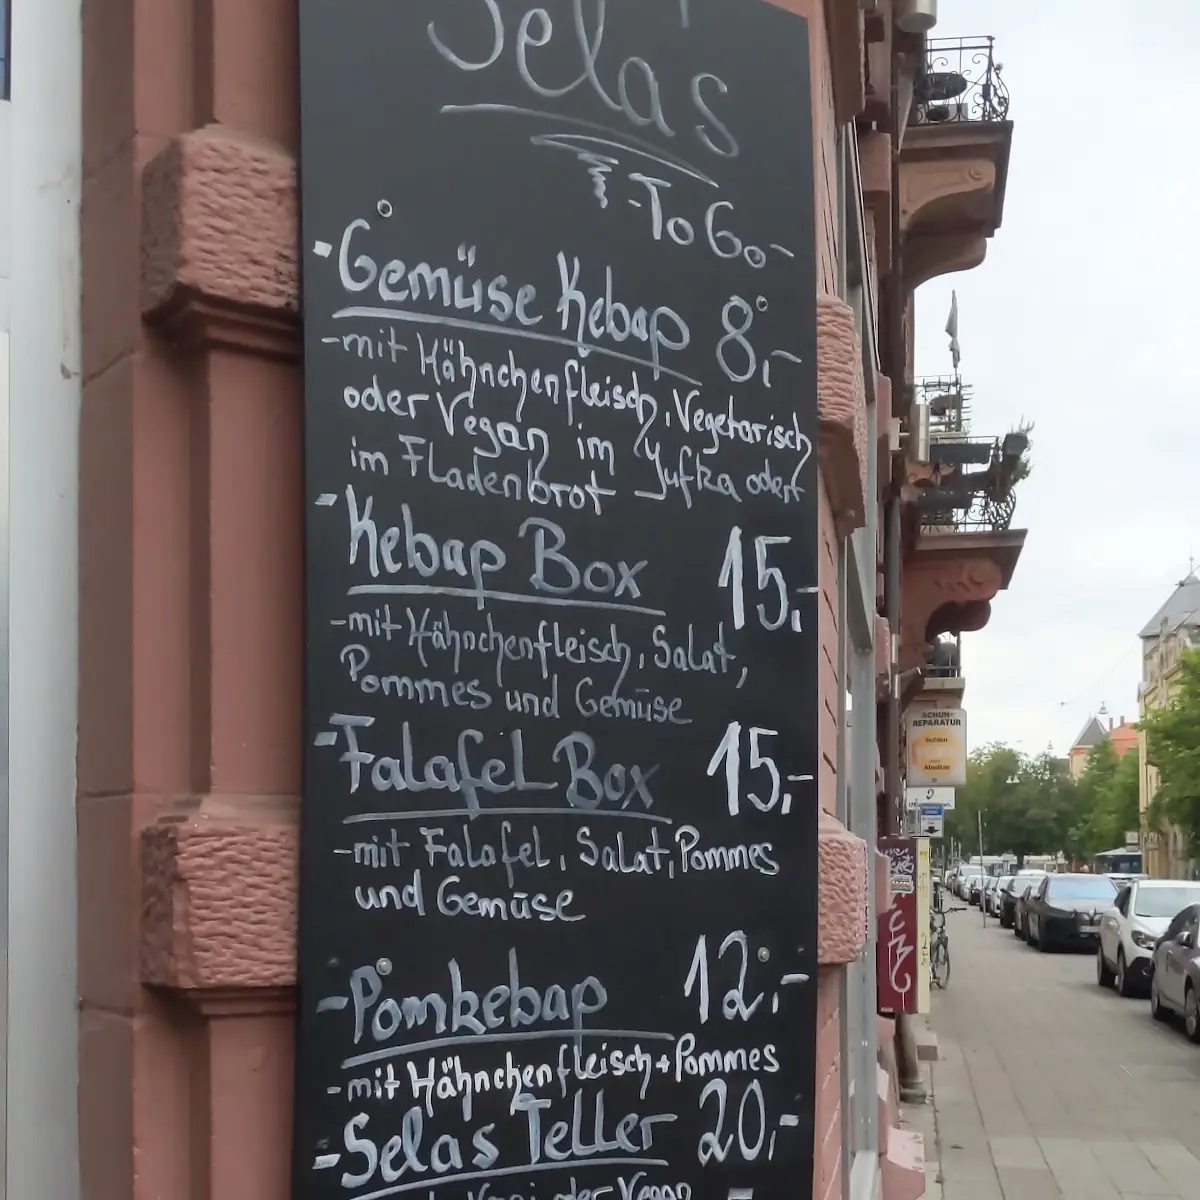 Sela's
-To Go-
-Gemüse Kebap 8,-
-mit Hähnchenfleisch, Vegetarisch
oder Vegan im Yufka oder
im Fladenbrot
-Kebap Box 15,-
-mit Hähnchenfleisch, Salat,
Pommes und Gemüse
-Falafel Box 15,-
-mit Falafel, Salat, Pommes
und Gemüse
-Pomkebap 12,-
-mit Hähnchenfleisch + Pommes
-Selas Teller 20,-
oder Vegan
SCHUH-
REPARATUR
Sohlen
Absätze